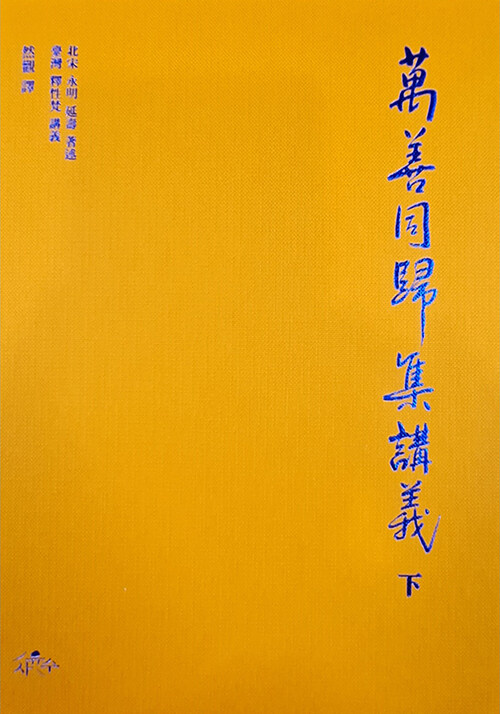 萬善同歸集講義 下
北宋 永明 延壽 著述
臺灣 釋性梵 講義
然觀 譯